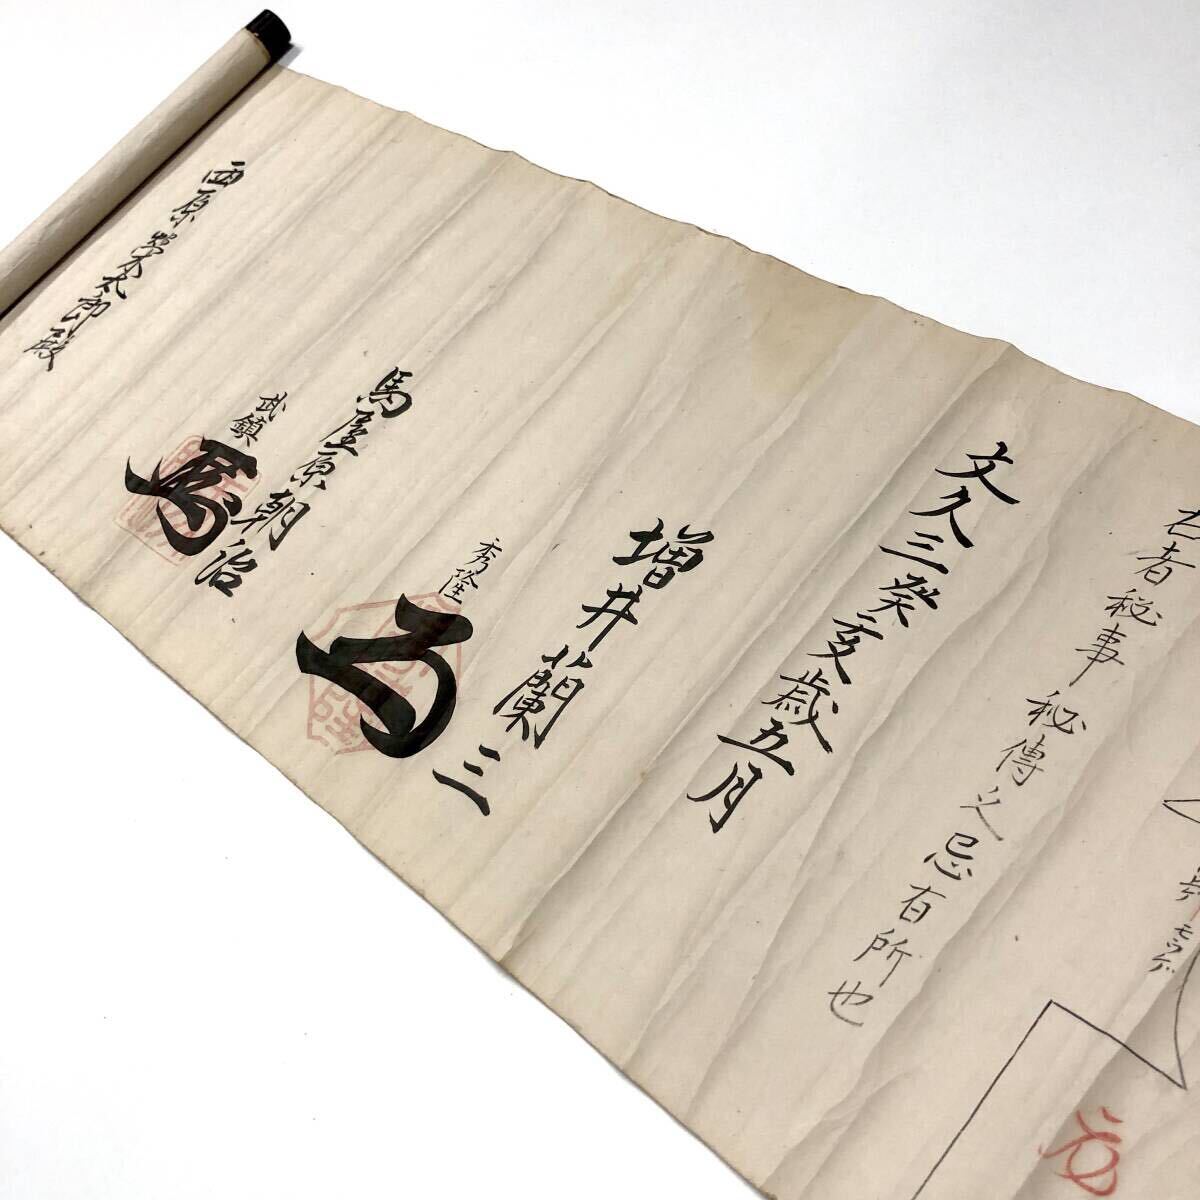 右者秘事秘傳之忌有所也
文久三癸亥歳五月
増井蘭三
秀隆
馬屋原朝治
武鎮
西原栄太郎殿